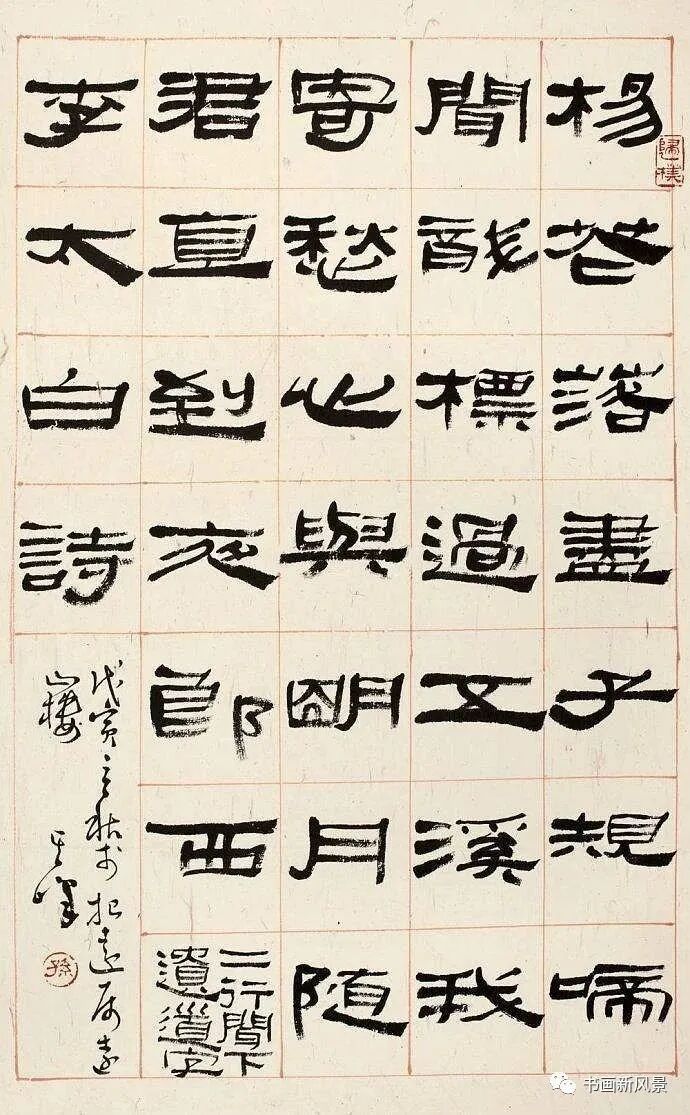 楊花落盡子規啼
聞龍標過五溪我
寄愁心與朙月隨
君直到夜郎西
二行聞下
遺道字
李太白詩
戊寅之秋於
山樓
其峰
孫
书画新风景